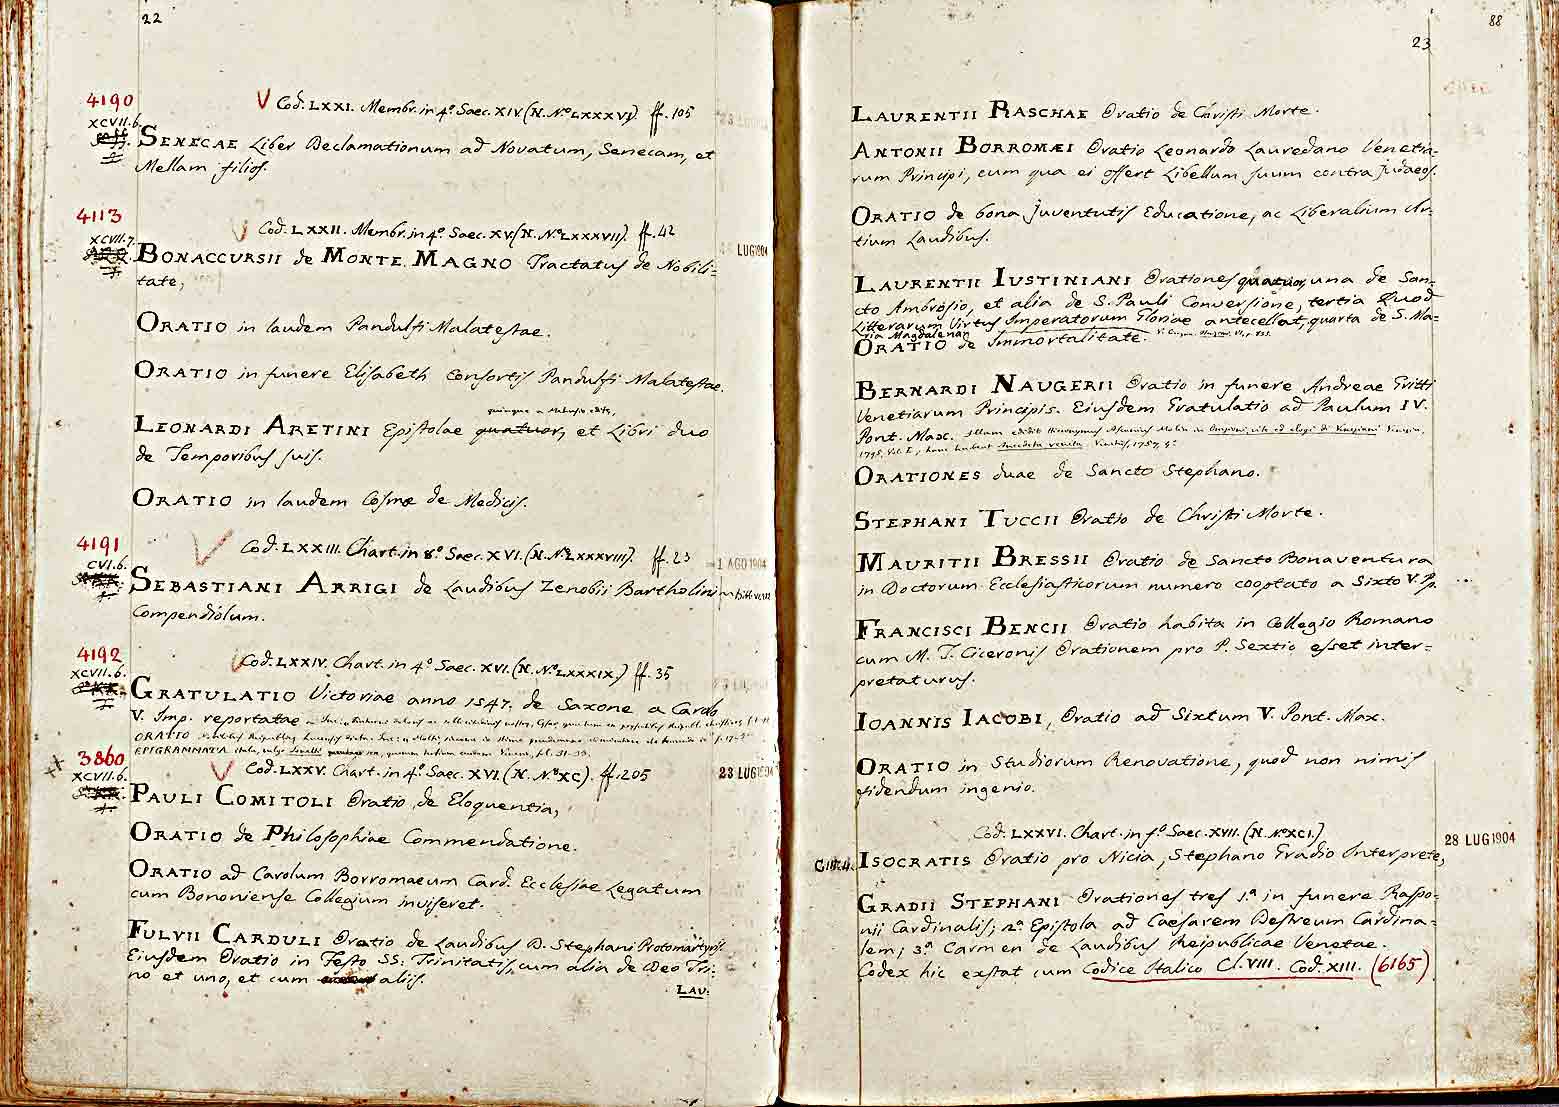 22
4190
XCVII.6.
Cod. LXXI. Membr. in 4.º Saec. XIV. (N. N.º LXXXVI) ff. 105
SENECAE Liber Declamationum ad Novatum, Senecam, et
Mellam filios.
4113
XCVII.7.
Cod. LXXII. Membr. in 4.º Saec. XV. (N. N.º LXXXVII). ff. 42
LUG 1904
BONACCURSII de MONTE MAGNO Tractatus de Nobili=
tate,
ORATIO in laudem Pandulfi Malatestae.
ORATIO in funere Elisabeth Consortis Pandulfi Malatestae.
quinque a Mehusio editae,
LEONARDI ARETINI Epistolae quatuor, et Libri duo
de Temporibus suis.
ORATIO in laudem Cosmae de Medicis.
4191
CVI.6.
Cod. LXXIII. Chart. in 8.º Saec. XVI. (N. N.º LXXXVIII). ff. 23
1 AGO 1904
SEBASTIANI ARRIGI de Laudibus Zenobii Bartholini
Compendiolum.
4192
XCVII.6.
Cod. LXXIV. Chart. in 4.º Saec. XVI. (N. N.º LXXXIX.) ff. 35
GRATULATIO Victoriae anno 1547. de Saxone a Carolo
V. Imp. reportatae
ORATIO
EPIGRAMMATA
3860
XCVII.6.
Cod. LXXV. Chart. in 4.º Saec. XVI. (N. N.º XC). ff. 205
23 LUG 1904
PAULI COMITOLI Oratio de Eloquentia,
ORATIO de Philosophiae Commendatione.
ORATIO ad Carolum Borromaeum Card. Ecclesiae Legatum
cum Bononiense Collegium inviseret.
FULVII CARDULI Oratio de Laudibus D. Stephani Protomartyris
Eiusdem Oratio in Festo SS: Trinitatis, cum alia de Deo Tri=
no et uno, et cum aliis.
LAU:
88
23
LAURENTII RASCHAE Oratio de Christi Morte.
ANTONII BORROMÆI Oratio Leonardo Lauredano Venetia=
rum Principi, cum qua ei offert Libellum suum contra Judaeos.
ORATIO de bona Juventutis Educatione, ac Liberalium Ar=
tium Laudibus.
LAURENTII IUSTINIANI Orationes quatuor, una de San=
cto Ambrosio, et alia de S. Pauli Conversione, tertia Quod
Litterarum Virtus Imperatorum Gloriae antecellat, quarta de S. Ma=
ria Magdalena
ORATIO de Immortalitate.
BERNARDI NAUGERII Oratio in funere Andreae Gritti
Venetiarum Principis. Eiusdem Gratulatio ad Paulum IV.
Pont. Max.
ORATIONES duae de Sancto Stephano.
STEPHANI TUCCII Oratio de Christi Morte.
MAURITII BRESSII Oratio de Sancto Bonaventura
in Doctorum Ecclesiasticorum numero cooptato a Sixto V. P.
FRANCISCI BENCII Oratio habita in Collegio Romano
cum M. T. Ciceronis Orationem pro P. Sextio esset inter=
pretaturus.
IOANNIS IACOBI, Oratio ad Sixtum V. Pont. Max.
ORATIO in Studiorum Renovatione, quod non nimis
fidendum ingenio.
Cod. LXXVI. Chart. in f.º Saec. XVII. (N. N.º XCI.)
28 LUG 1904
ISOCRATIS Oratio pro Nicia, Stephano Gradio Interprete,
GRADII STEPHANI Orationes tres 1.ª in funere Raspo=
nii Cardinalis; 2.ª Epistola ad Caesarem Destreum Cardina=
lem; 3.ª Carmen de Laudibus Reipublicae Venetae.
Codex hic exstat cum Codice Italico Cl. VIII. Cod. XIII. (6165)